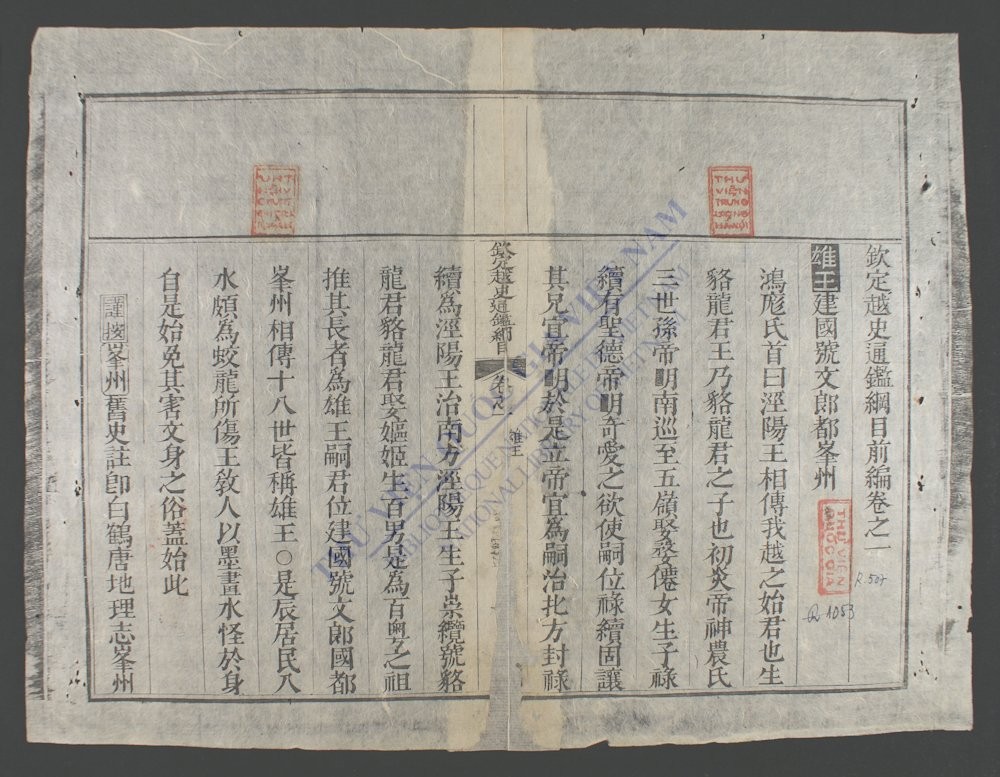 欽定越史通鑑綱目前編卷之一
雄王建國號文郎都峯州
鴻厖氏首曰涇陽王相傳我越之始君也生
貉龍君王乃貉龍君之子也初炎帝神農氏
三世孫帝明南巡至五嶺娶婺僊女生子祿
續有聖德帝明奇愛之欲使嗣位祿續固讓
其兄宜帝明於是立帝宜為嗣治北方封祿
欽定越史通鑑綱目 卷之一 雄王
續為涇陽王治南方涇陽王生子崇纜號貉
龍君貉龍君娶嫗姬生百男是為百粵之祖
推其長者為雄王嗣君位建國號文郎國都
峯州相傳十八世皆稱雄王○是辰居民入
水頗為蛟龍所傷王教人以墨畫水怪於身
自是始免其害文身之俗蓋始此
謹按峯州舊史註卽白鶴唐地理志峯州
THƯ VIỆN TRUNG ƯƠNG
THƯ VIỆN QUỐC GIA
R.507
R 1053
THƯ VIỆN QUỐC GIA VIỆT NAM
NATIONAL LIBRARY OF VIETNAM